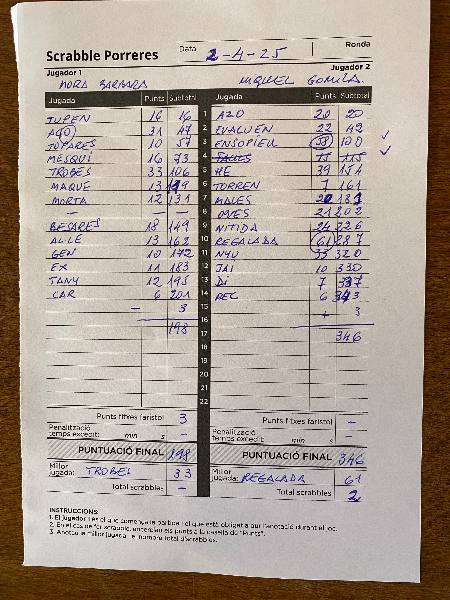 Scrabble Porreres Data 2-4-25 Ronda
Jugador 1 Jugador 2
MORA BARBARA MIQUEL GOMILA
Jugada Punts Subtotal Jugada Punts Subtotal
JUPEN 16 16 1 AZO 20 20
31 47 2 22 42
10 57 3 58 100
MESQUI 16 73 4 15 115
TROBES 33 106 5 HE 39 154
MAQUE 13 119 6 TORREN 7 161
MORTA 12 131 7 MALES 20 181
— — — 8 21 202
BESARES 18 149 9 NITIDA 24 226
13 162 10 REGALADA 61 287
GEN 10 172 11 NYU 33 320
EX 11 183 12 JAI 10 330
TANY 12 195 13 DI 7 337
CAR 6 201 14 REC 6 343
— 3 15 + 3
198 16 346
17
18
19
20
21
22
Punts fitxes faristol 3 Punts fitxes faristol –
Penalització temps excedit: min s – Penalització temps excedit: min s –
PUNTUACIÓ FINAL 198 PUNTUACIÓ FINAL 346
Millor jugada: TROBES 33 Millor jugada: REGALADA 61
Total scrabbles – Total scrabbles 2
INSTRUCCIONS:
1. El jugador 1 és el que comença la partida i el que està obligat a dur l'anotació durant el joc.
2. En el cas de fer scrabble, encerclau els punts a la casella de "Punts".
3. Anotau la millor jugada i el nombre total d'scrabbles.